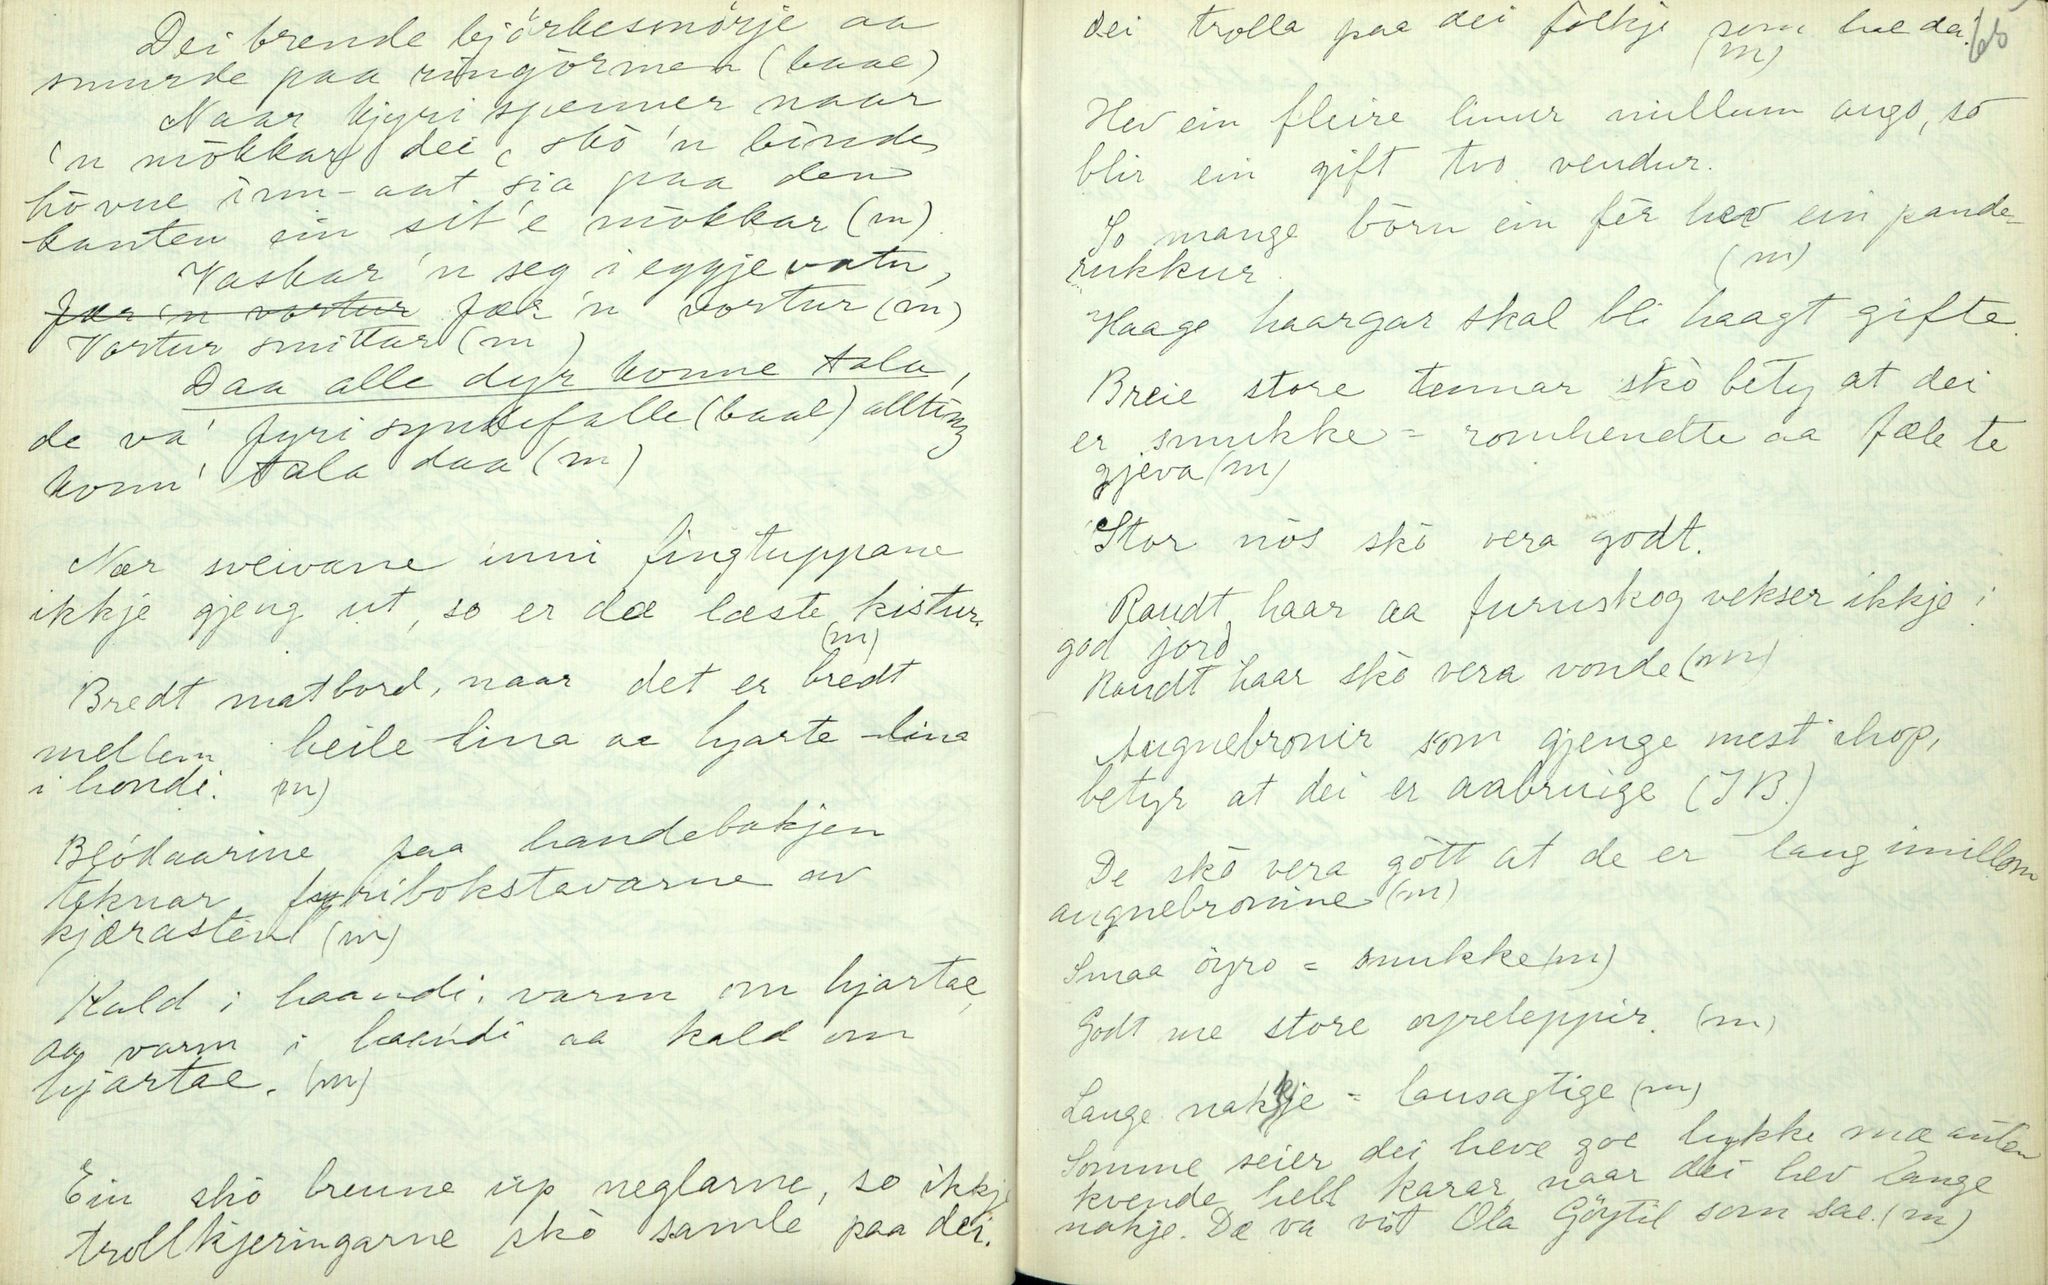 Dei brende bjørkesmørje aa
smurde paa ringormen (baal)
Naar kjyri spenner naar
'n mòkkar dei, skò 'n binde
hòvne inn-aat sia paa den
kanten ein sit'e mòkkar (m).
Vaskar 'n seg i eggjevatn,
fær 'n vortur fær 'n vortur (m)
Vortur smittar (m)
Daa alle dyr konne tala,
de va' fyri syndefalle (baal) allting
konn' tala daa (m)
Nær sveivane inni fingtuppane
ikkje gjeng ut, so er dæ læste kistur.
(m)
Bredt matbord, naar det er bredt
mellem heile-lina aa hjarte-lina
i hondi. (m)
Blódaarine paa handebakjen
teknar fyribokstavarne av
kjærasten (m)
Kald i haandi, varm om hjartae,
aa varm i haandi aa kald om
hjartae. (m)
Ein skò brenne up neglarne, so ikkje
trollkjeringarne skò samle paa dei.
Dei trolla paa dei fòlkje som hae da.
(m)
65
Hev ein fleire linur millum augo, so
blir ein gift tvo vendur.
So mange bòrn ein fèr hev ein pande-
rukkur. (m)
Haage haargar skal bli haagt gifte.
Breie store tennar skò bety at dei
er smukke = romhendte aa fæle te
gjeva (m)
Stor nòs skò vera godt.
Raudt haar aa furuskog vekser ikkje i
god jord
Raudt haar skò vera vonde (m)
Augnebronir som gjenge mest ihop,
betyr at dei er aabruige (IB.)
De skò vera gòtt at de er lang imillom
augnebronine (m)
Smaa òyro = smukke (m)
Godt me store oyreleppir. (m)
Lange nakje = lausagtige (m)
Somme seier dei heve goe lykke mæ anten
kvende hell karar, naar dei hev lange
nakje. Dæ va vist Ola Göytil som sae. (m)